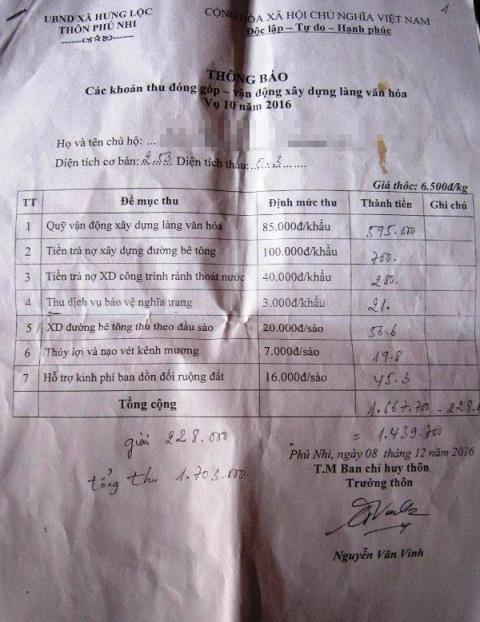 1
UBND XÃ HƯNG LỘC
THÔN PHÚ NHI
CỘNG HÒA XÃ HỘI CHỦ NGHĨA VIỆT NAM
Độc lập – Tự do – Hạnh phúc
THÔNG BÁO
Các khoản thu đóng góp – vận động xây dựng làng văn hóa
Vụ 10 năm 2016
Họ và tên chủ hộ: ...
Diện tích cơ bản: 2.53 Diện tích thầu: 0.3
Giá thóc: 6.500đ/kg
TT Đề mục thu Định mức thu Thành tiền Ghi chú
1 Quỹ vận động xây dựng làng văn hóa 85.000đ/khẩu 595.000
2 Tiền trả nợ xây dựng đường bê tông 100.000đ/khẩu 700.
3 Tiền trả nợ XD công trình rãnh thoát nước 40.000đ/khẩu 280.
4 Thu dịch vụ bảo vệ nghĩa trang 3.000đ/khẩu 21.
5 XD đường bê tông thu theo đầu sào 20.000đ/sào 56.6
6 Thủy lợi và nạo vét kênh mương 7.000đ/sào 19.8
7 Hỗ trợ kinh phí ban dồn đổi ruộng đất 16.000đ/sào 45.3
Tổng cộng 1.667.700 - 228.
= 1.439.700
giải 228.000
tổng thu 1.703.000
Phú Nhi, ngày 08 tháng 12 năm 2016
T.M Ban chỉ huy thôn
Trưởng thôn
Nguyễn Văn Vinh